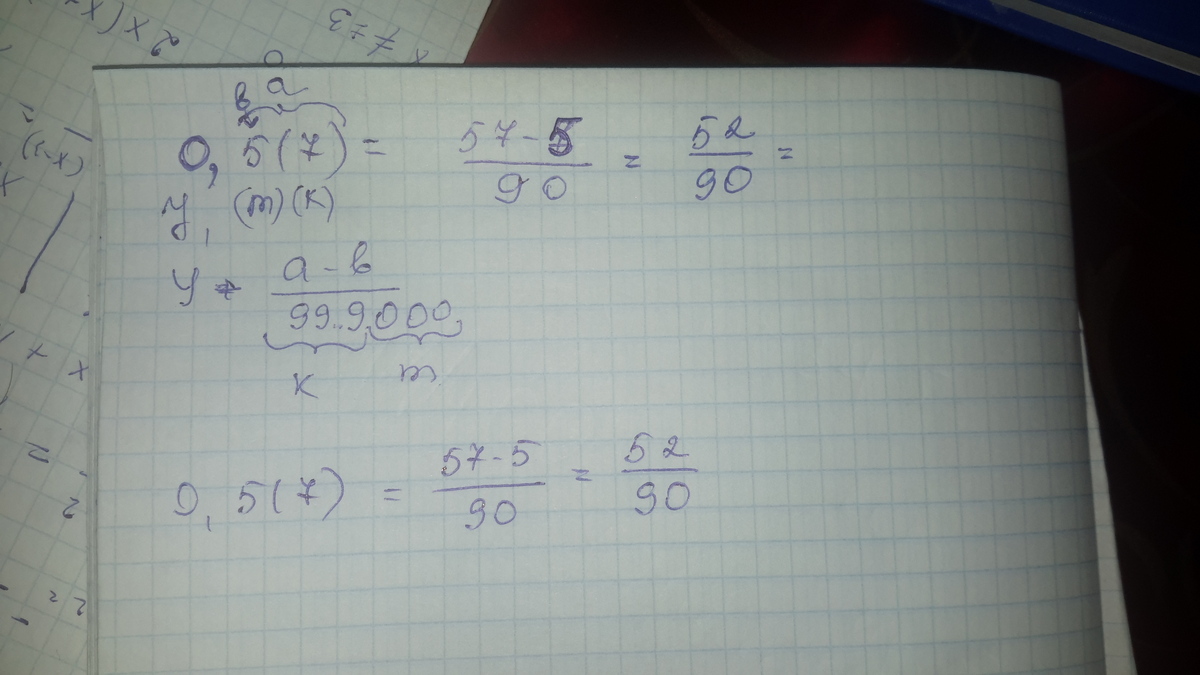 2x(x
x 7=3
в a
0, 5(7) = 57-5/90 = 52/90 =
У, (m)(к)
У + a-в/99..9000
к m
0, 5(7) = 57-5/90 = 52/90